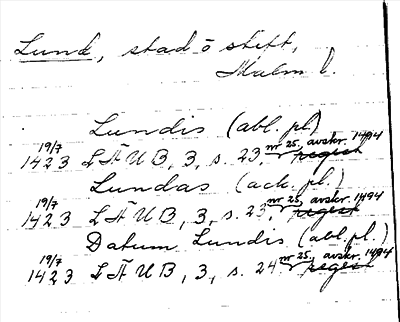 Lund, stad o stift,
Malm l.
Lundis (abl. pl)
19/7 1423 LÄUB, 3, s. 23, nr 25, avskr. 1494 regest
Lundas (ack. pl.)
19/7 1423 LÄUB, 3, s. 23, nr 25, avskr. 1494 regest
Datum Lundis (abl. pl.)
19/7 1423 LÄUB, 3, s. 24 nr 25, avskr. 1494 regest